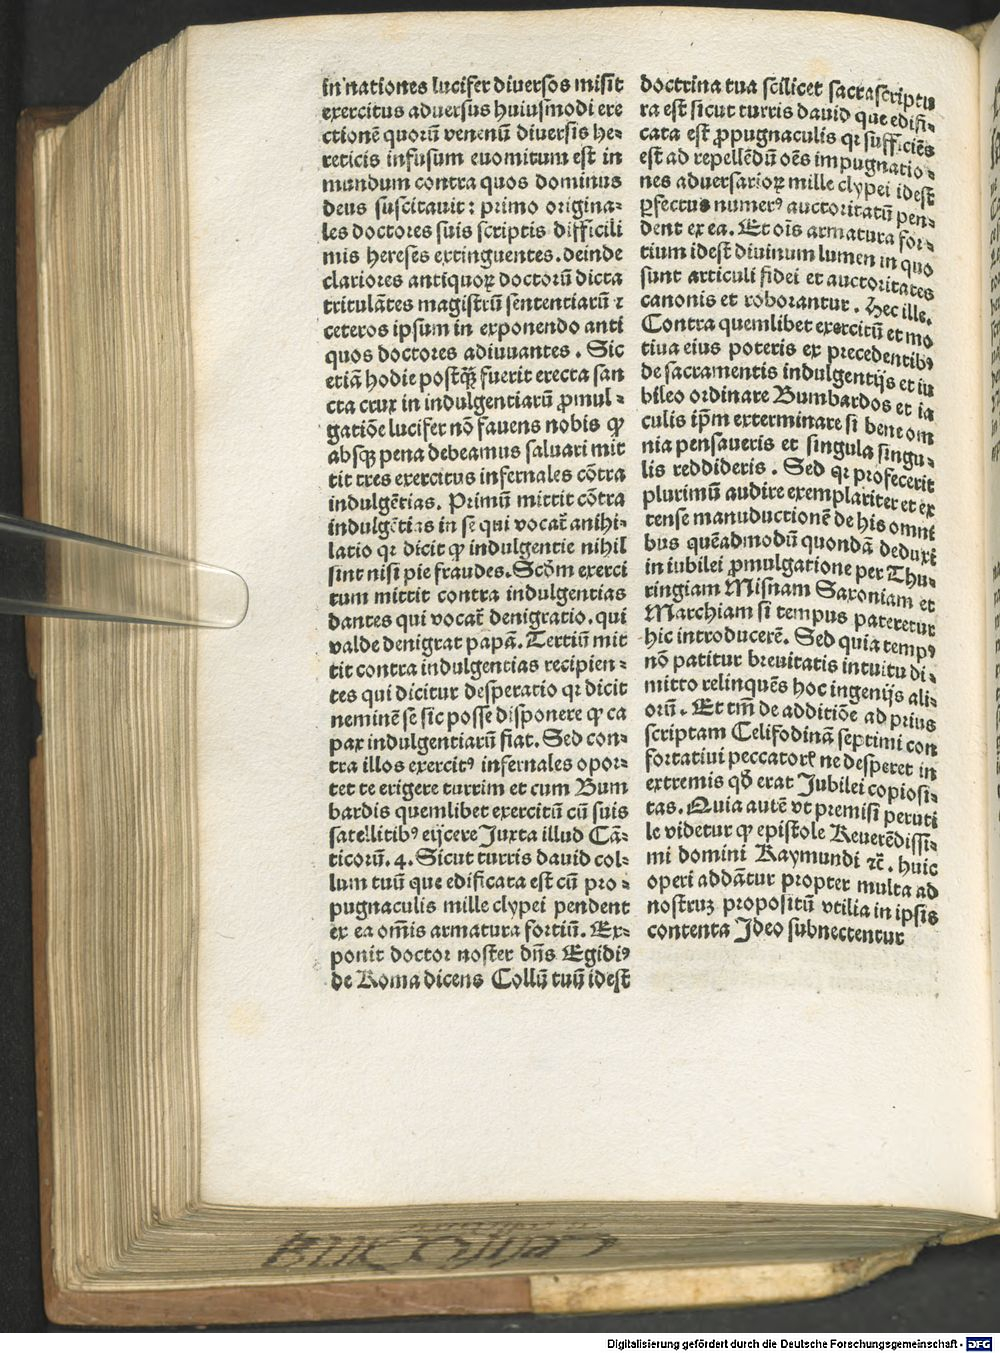 in nationes lucifer diuersos misit
exercitus aduersus huiusmodi ere
ctionē quorū venenū diuersis he-
reticis infusum euomitum est in
mundum contra quos dominus
deus suscitauit: primo origina-
les doctores suis scriptis difficili
mis hereses extinguentes. deinde
clariores antiquoꝝ doctorū dicta
tritulātes magistrū sententiarū ⁊
ceteros ipsum in exponendo anti
quos doctores adiuuantes. Sic
etiā hodie postꝗ̄ fuerit erecta san
cta crux in indulgentiarū ꝓmul-
gatiōe lucifer nō fauens nobis ꝙ
absꝗ pena debeamus saluari mit
tit tres exercitus infernales cōtra
indulgētias. Primū mittit cōtra
indulgētias in se qui vocat᷑ anihi-
latio qꝛ dicit ꝙ indulgentie nihil
sint nisi pie fraudes. Scd̄m exerci
tum mittit contra indulgentias
dantes qui vocat᷑ denigratio. qui
valde denigrat papā. Tertiū mit
tit contra indulgentias recipien-
tes qui dicitur desperatio qꝛ dicit
neminē se sic posse disponere ꝙ ca
pax indulgentiarū fiat. Sed con-
tra illos exercitꝰ infernales opor-
tet te erigere turrim et cum Bum
bardis quemlibet exercitū cū suis
satellitibꝰ eijcere Juxta illud Cā-
ticorū. 4. Sicut turris dauid col-
lum tuū que edificata est cū pro-
pugnaculis mille clypei pendent
ex ea om̄is armatura fortiū. Ex-
ponit doctor noster dn̄s Egidiꝰ
de Roma dicens Collū tuū idest
doctrina tua scilicet sacra scriptu
ra est sicut turris dauid que edifi-
cata est ꝓpugnaculis qꝛ sufficiēs
est ad repellēdū oēs impugnatio-
nes aduersarioꝝ mille clypei idest
ꝑfectus numerꝰ auctoritatū pen-
dent ex ea. Et oīs armatura for-
tium idest diuinum lumen in quo
sunt articuli fidei et auctoritates
canonis et roborantur. Hec ille.
Contra quemlibet exercitū et mo
tiua eius poteris ex precedentibꝰ
de sacramentis indulgentijs et iu
bileo ordinare Bumbardos et ia
culis ip̄m exterminare si bene om
nia pensaueris et singula singu-
lis reddideris. Sed qꝛ profecerit
plurimū audire exemplariter et ex
tense manuductionē de his omni
bus quēadmodū quondā deduxi
in iubilei ꝓmulgatione per Thu-
ringiam Misnam Saxoniam et
Marchiam si tempus pateretur
hic introducerē. Sed quia tempꝰ
nō patitur breuitatis intuitu di-
mitto relinquēs hoc ingenijs ali-
orū. Et tm̄ de additiōe ad prius
scriptam Celifodinā septimi con
fortatiui peccatorꝭ ne desperet in
extremis qd̄ erat Jubilei copiosi-
tas. Quia autē vt premisi peruti
le videtur ꝙ epistole Reuerēdissi-
mi domini Raymundi ⁊c̄. huic
operi addātur propter multa ad
nostruꝫ propositū vtilia in ipsis
contenta Ideo subnectentur
Digitalisierung gefördert durch die Deutsche Forschungsgemeinschaft - DFG